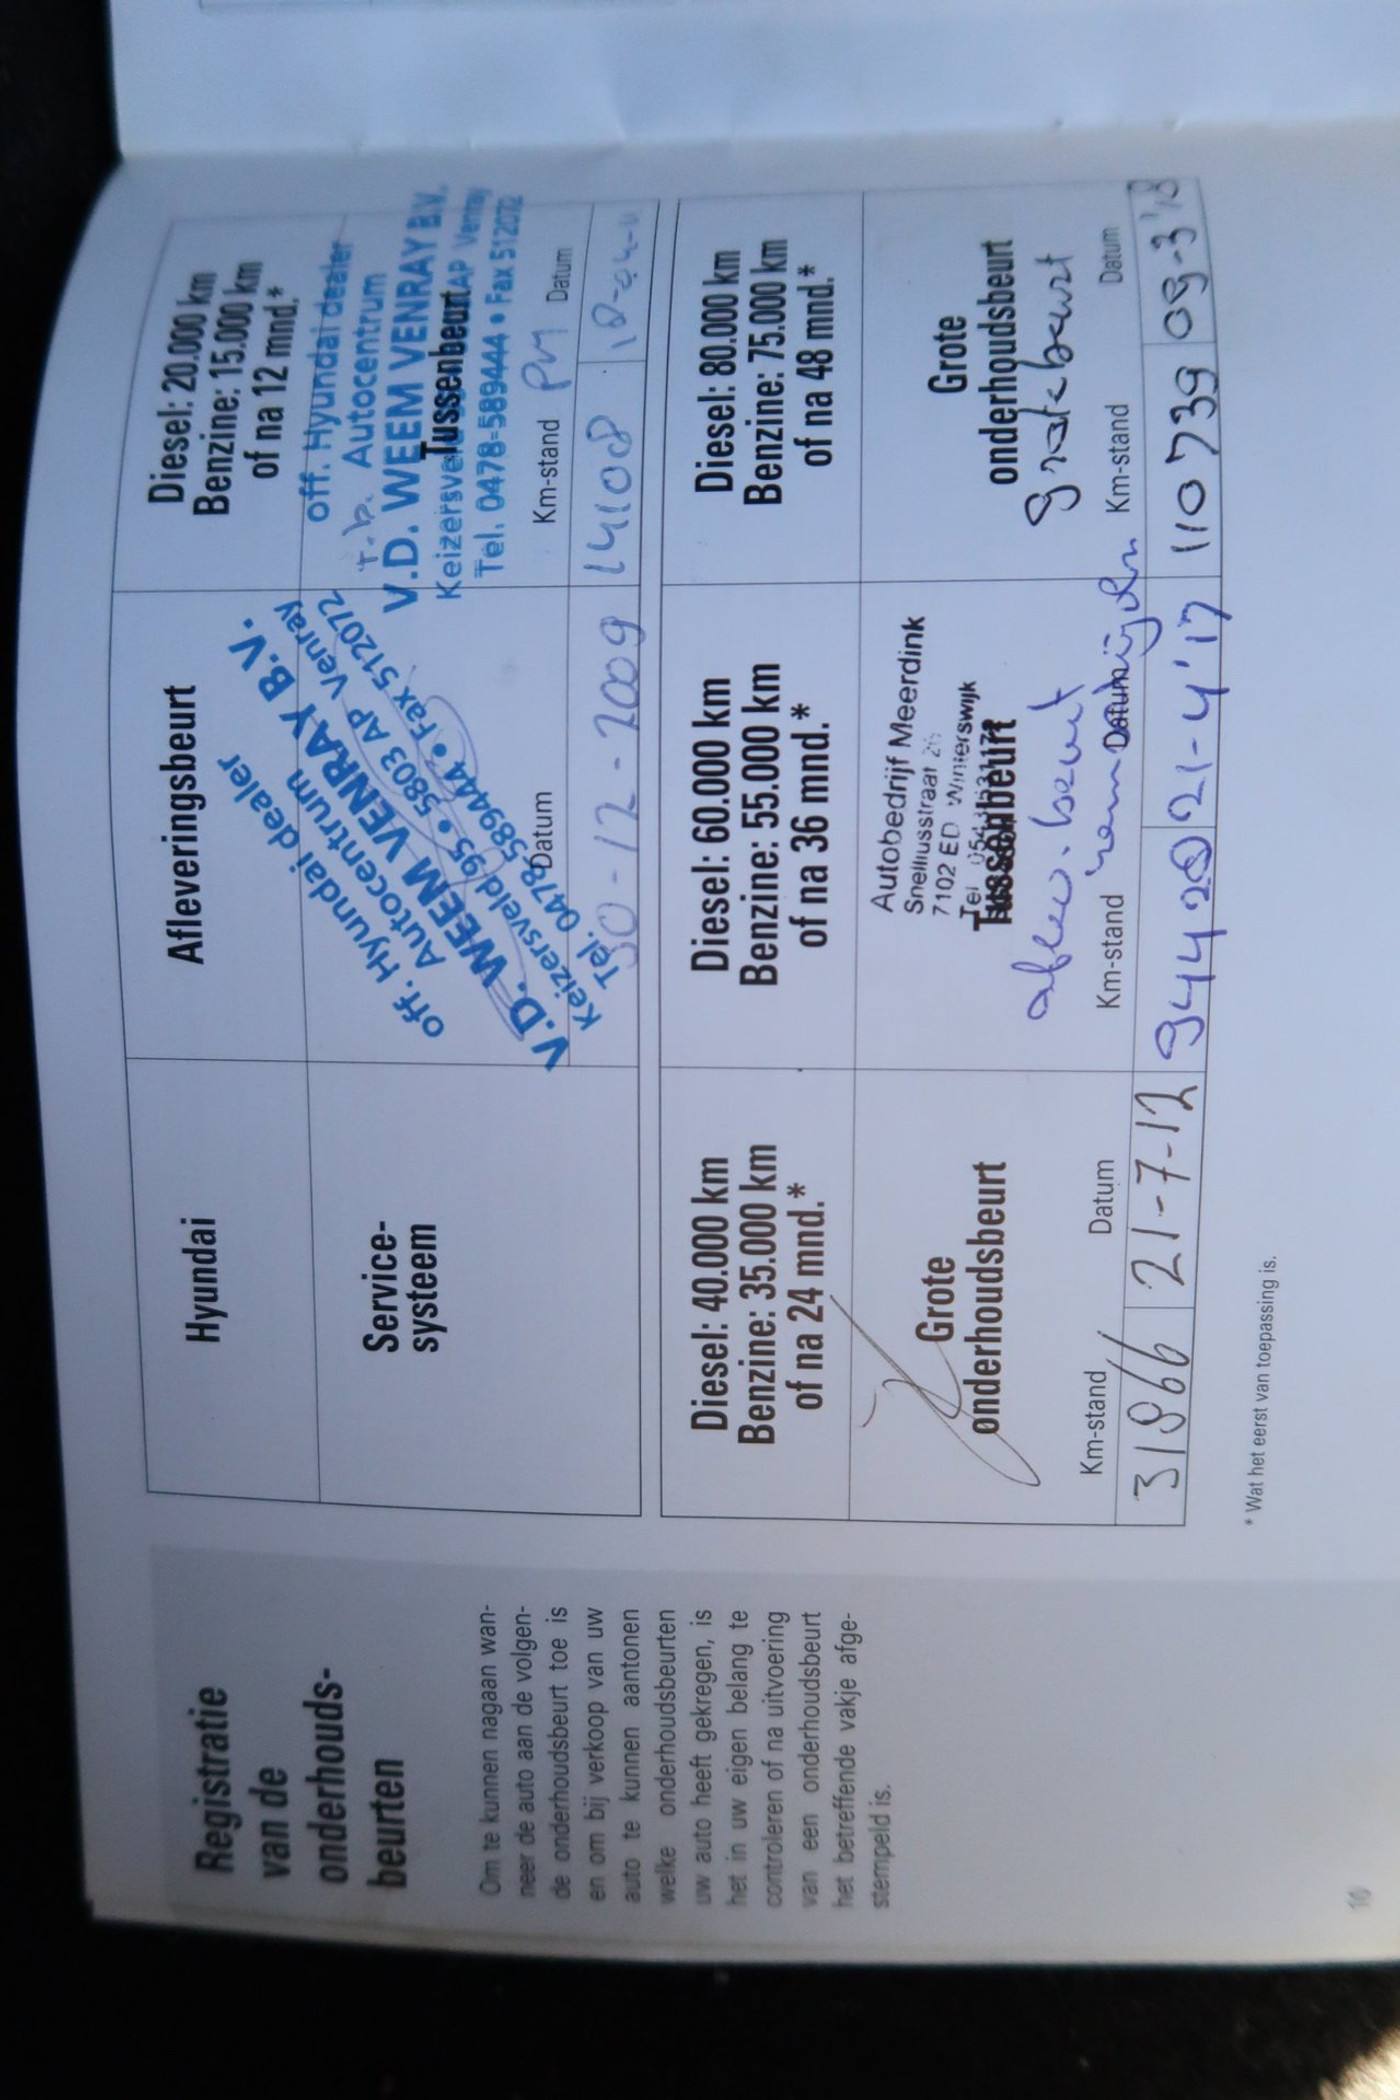 Registratie
van de
onderhouds-
beurten
Om te kunnen nagaan wan-
neer de auto aan de volgen-
de onderhoudsbeurt toe is
en om bij verkoop van uw
auto te kunnen aantonen
welke onderhoudsbeurten
uw auto heeft gekregen, is
het in uw eigen belang te
controleren of na uitvoering
van een onderhoudsbeurt
het betreffende vakje afge-
stempeld is.
Hyundai
Service-
systeem
Afleveringsbeurt
off. Hyundai dealer
Autocentrum
V.D. WEEM VENRAY B.V.
Keizersveld 95 • 5803 AP Venray
Tel. 0478-589444 • Fax 512072
Datum
30-12-2009
Diesel: 20.000 km
Benzine: 15.000 km
of na 12 mnd.*
off. Hyundai dealer
Autocentrum
V.D. WEEM VENRAY B.V.
Tussenbeurt
Keizersveld AP Venray
Tel. 0478-589444 • Fax 512072
Km-stand
Datum
14108
Diesel: 40.000 km
Benzine: 35.000 km
of na 24 mnd.*
Grote
onderhoudsbeurt
Km-stand
Datum
31866
21-7-12
Diesel: 60.000 km
Benzine: 55.000 km
of na 36 mnd.*
Autobedrijf Meerdink
Snelliusstraat
7102 ED Winterswijk
Tel
Tussenbeurt
aflev. beurt
Km-stand
Datum
94420
21-4'17
Diesel: 80.000 km
Benzine: 75.000 km
of na 48 mnd.*
Grote
onderhoudsbeurt
grote beurt
Km-stand
Datum
110739
09-3'18
* Wat het eerst van toepassing is.
10